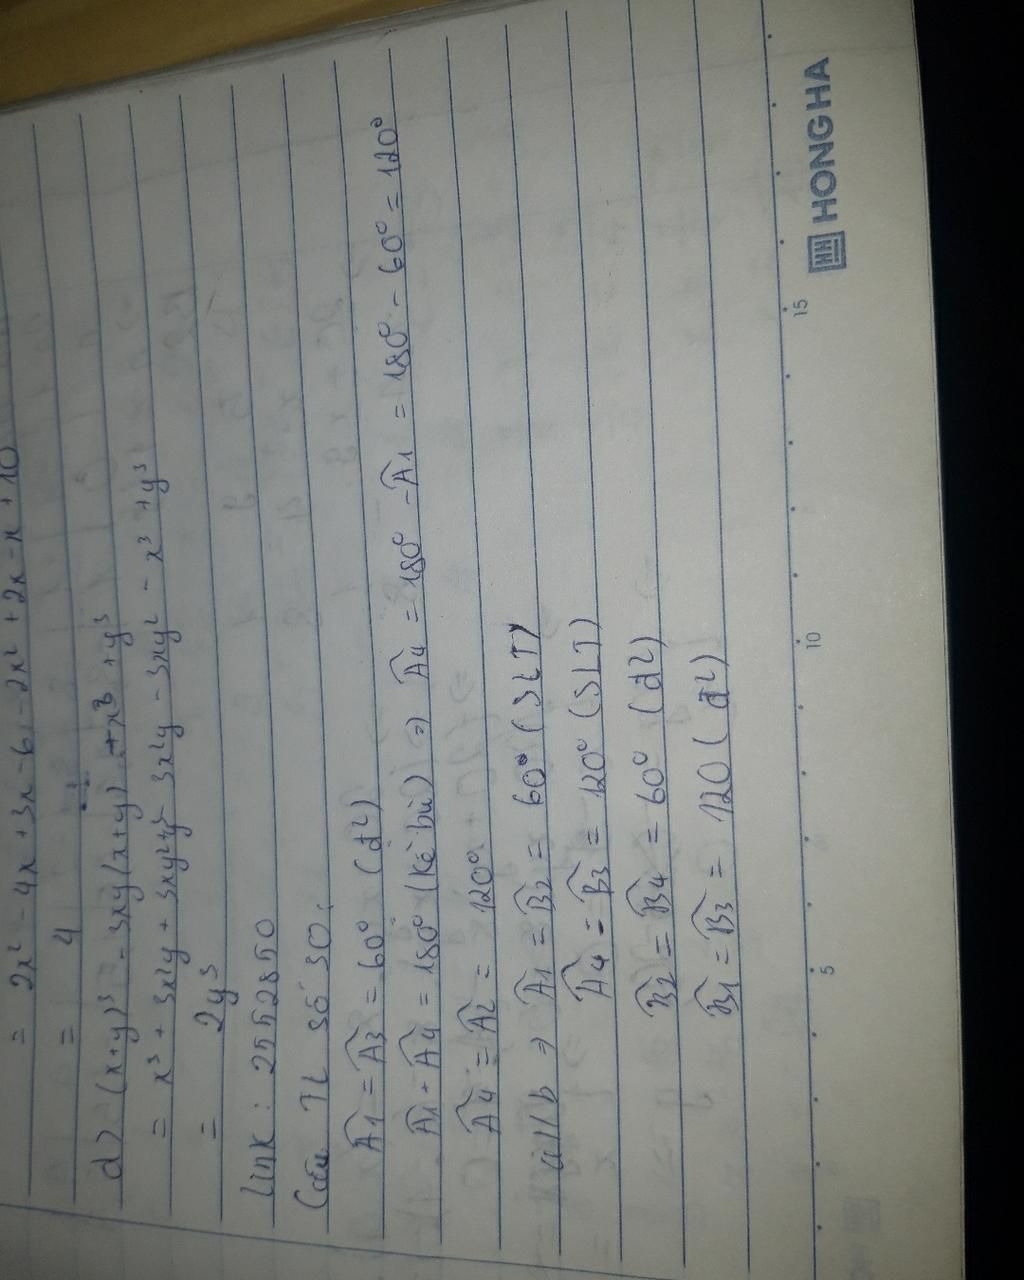 = 2x² - 4x + 3x - 6 - 2x² + 2x - x + 10
= 4
d) (x+y)³ - 3xy(x+y) - x³ + y³
= x³ + 3x²y + 3xy² + y³ - 3x²y - 3xy² - x³ + y³
= 2y³
Link : 2552850
Câu TL số 30:
Â1 = Â3 = 60° (đ²)
Â1 + Â4 = 180° (Kề bù) ⇒ Â4 = 180° - Â1 = 180° - 60° = 120°
Â4 = Â2 = 120°
a//b ⇒ Â1 = B̂2 = 60° (SLT)
Â4 = B̂3 = 120° (SLT)
B̂2 = B̂4 = 60° (đ²)
B̂1 = B̂3 = 120 (đ²)
5 10 15
HH HONG HA